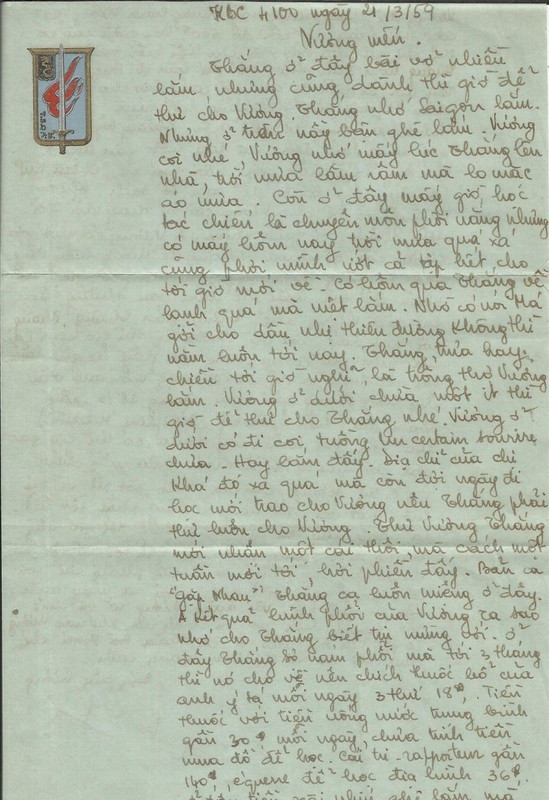 KBC 4100 ngày 21/3/59
Vương mến.
Thắng ở đây bài vở nhiều
lắm nhưng cũng dành thì giờ để
thư cho Vương. Thắng nhớ Saigon lắm.
Nhưng ở trên này bận ghê lắm. Vương
coi nhé. Vương nhớ mấy lúc Thắng lên
nhà, trời mưa lâm râm mà lo mặc
áo mưa. Còn ở đây mấy giờ học
tác chiến là chuyên môn phơi nắng nhưng
có mấy hôm nay trời mưa quá xá
cũng phơi mình ướt cả tập hết cho
tới giờ mới về. Có hôm qua Thắng về
lạnh quá mà mệt lắm. Nhờ có nói Má
gởi cho dầu nhị thiên đường không thì
nằm luôn tới nay. Thắng, trưa hay
chiều tới giờ nghỉ, là trông thơ Vương
lắm. Vương ở dưới chừa một ít thì
giờ để thư cho Thắng nhé. Vương ở
dưới có đi coi tuồng Un certain sourire
chưa. Hay lắm đấy. Địa chỉ của chị
Khá đó xa quá mà còn đợi ngày đi
học mới trao cho Vương nên Thắng phải
thư luôn cho Vương. Thư Vương Thắng
mới nhận một cái thôi, mà cách một
tuần mới tới, hơi phiền đấy. Bản ca
"Gặp Nhau" Thắng ca luôn miệng ở đây.
À kết quả hình phổi của Vương ra sao
nhớ cho Thắng biết tin mừng với. Ở
đây Thắng sợ nám phổi mà tới 3 tháng
thì nó cho về nên chích thuốc bổ của
anh y tá mỗi ngày 3 thứ 18$, Tiền
thuốc với tiền uống nước trung bình
gần 30$ mỗi ngày, chưa tính tiền
mua đồ để học. Cái tri-rapporteur gần
140$, équerre để học địa hình 36$.